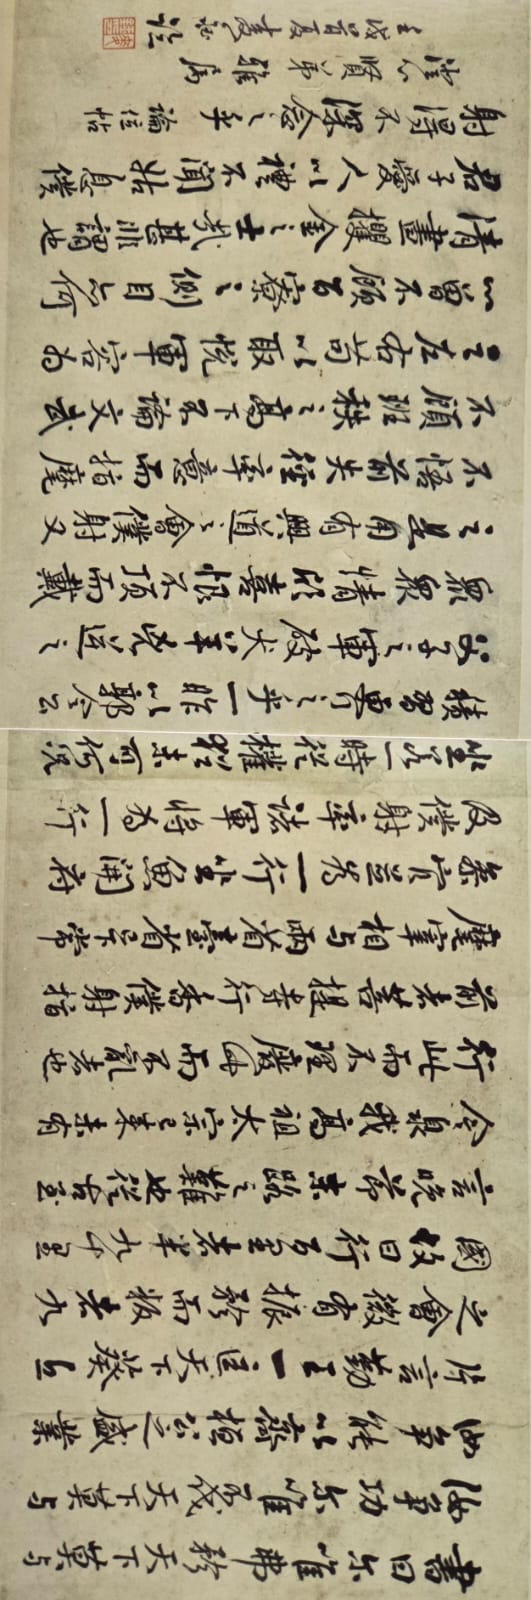 書曰尔唯弗矜天下莫与
汝争功尔唯不伐天下莫与
汝争能以齊桓公之盛業
片言勤王一匡天下葵丘
之會微有振矜而叛者九
國故曰行百里者半九十里
言晚節末路之難也從古至
今泉我高祖太宗已來未有
行此而不理廢此而不亂者也
前者菩提寺行香僕射指
麾宰相与兩省臺省已下常
參官並為一行坐魚開府
及僕射率諸軍將為一行
坐若一時從權猶未可何況
積習更行之乎一昨以郭令公
父子之軍破犬羊兇逆之
眾眾情欣喜恨不頂而戴
之是用有興道之會僕射又
不悟前失徑率意而指麾
不顧班秩之高下不論文武
之左右苟以取悅軍容為
心曾不顧百寮之側目亦何
清晝攫金之士哉甚非謂也
君子愛人以禮不聞姑息僕
射得不深念之乎 論坐帖
賢弟雅屬
壬戌首夏